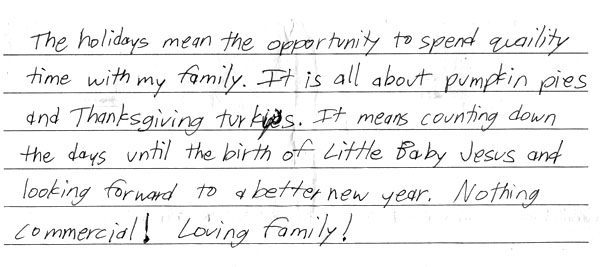 The holidays mean the opportunity to spend quaility
time with my family. It is all about pumpkin pies
and Thanksgiving turkies. It means counting down
the days until the birth of Little Baby Jesus and
looking forward to a better new year. Nothing
commercial! Loving family!